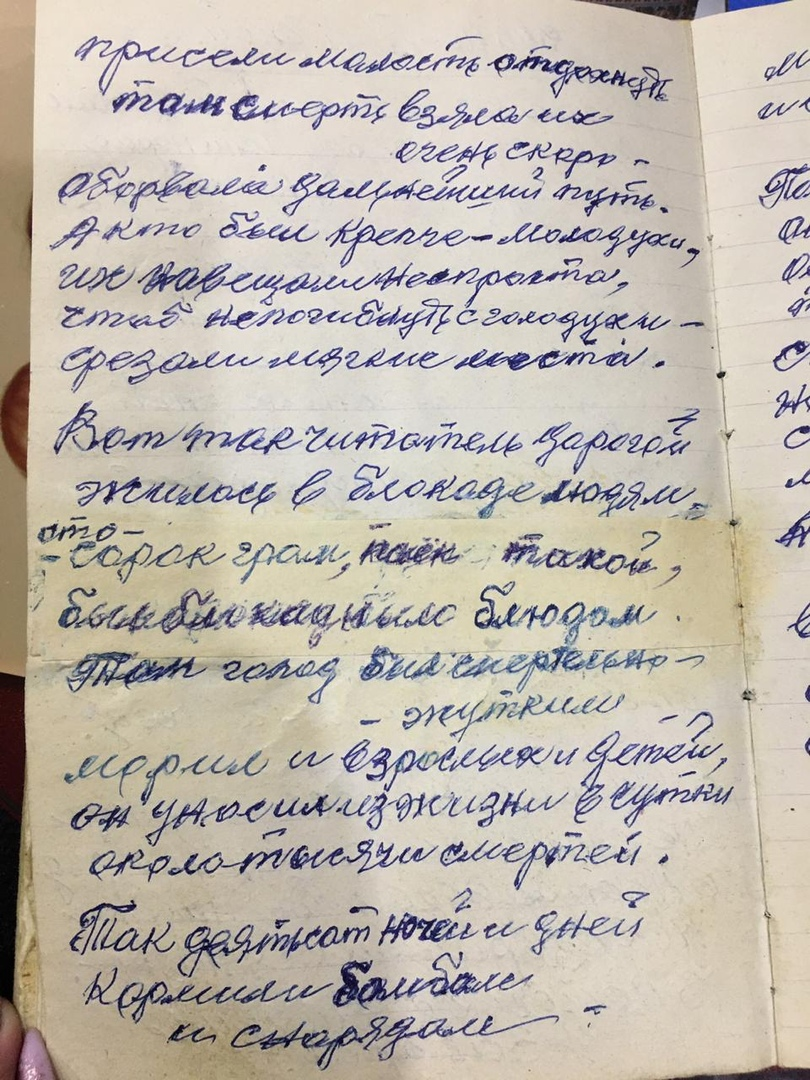 присели малость отдохнуть
там смерть взяла их
очень скоро -
оборвала дальнейший путь.
А кто был крепче - молодухи,
их навещали неспроста,
чтоб непогибнуть с голодухи -
срезали мягкие места.
Вот так читатель дорогой
жилось в блокаде людям -
сто-
- сорок грам, паек такой,
было блюдом.
Там голод был смертельно -
- жутким
морил и взрослых и детей,
он уносил из жизни в сутки
около тысячи смертей.
Так девятьсот ночей и дней
Кормили бомбами
и снарядам -